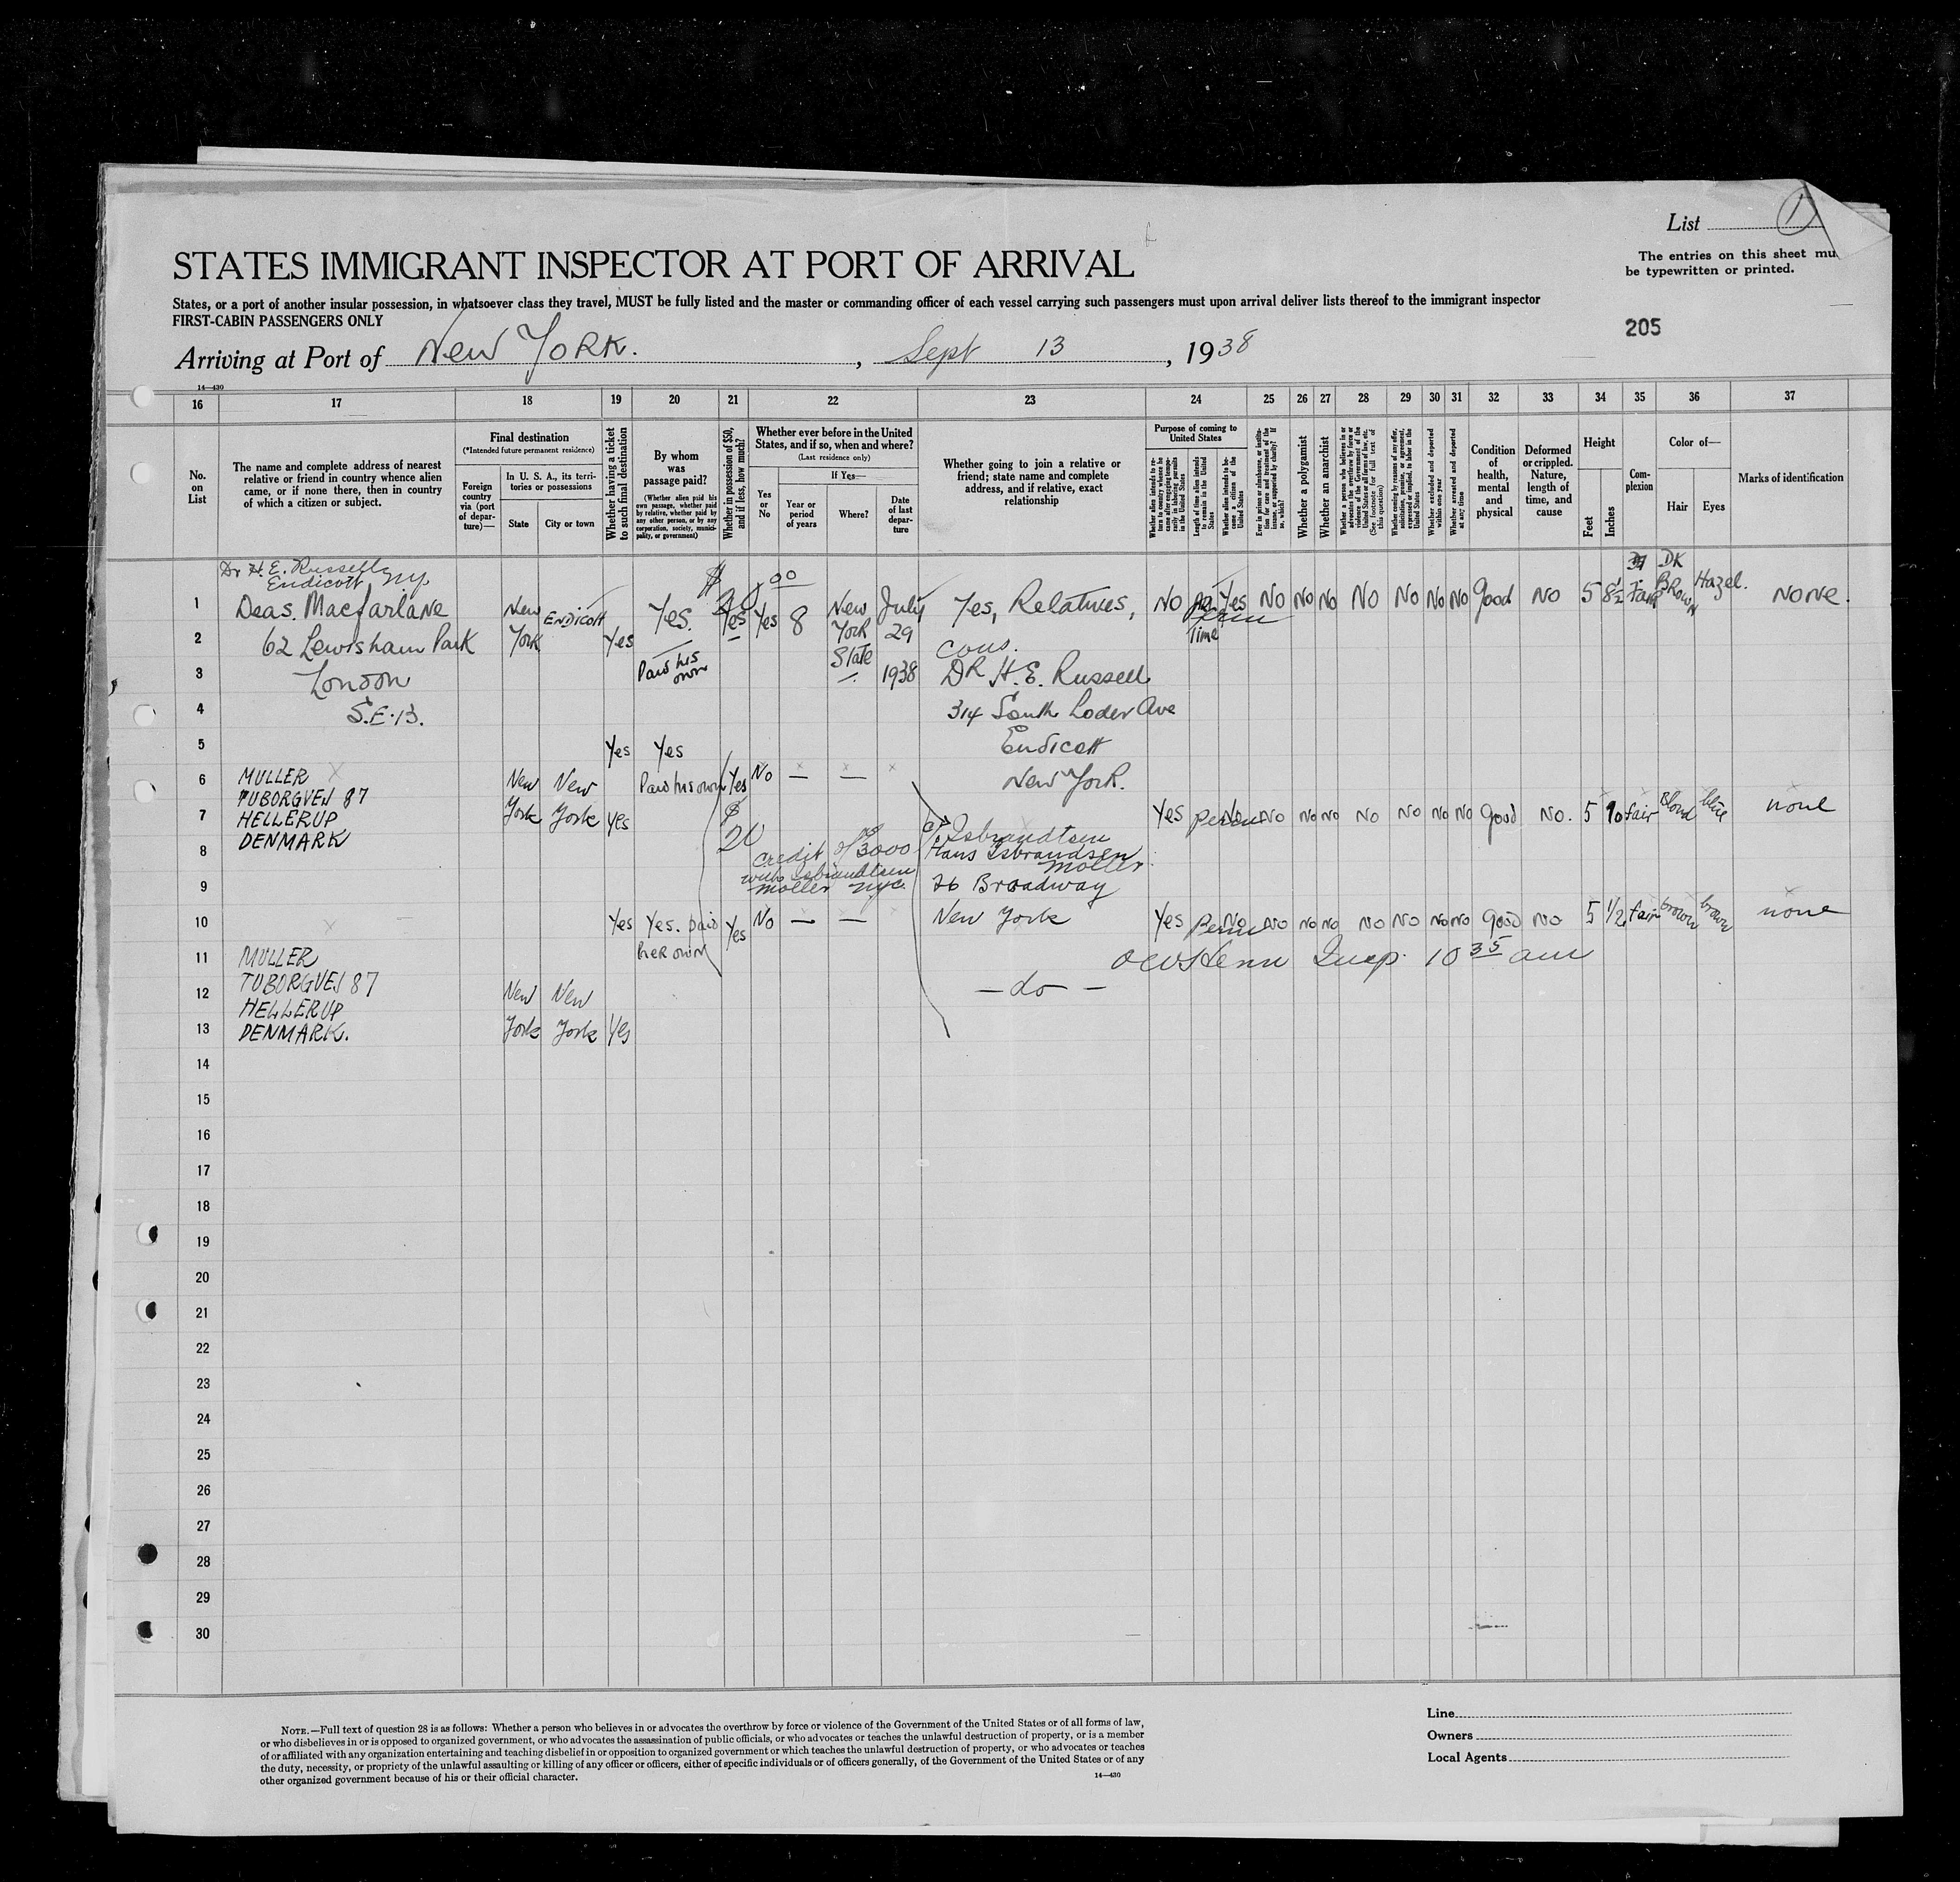 List 1
The entries on this sheet mu
be typewritten or printed.
STATES IMMIGRANT INSPECTOR AT PORT OF ARRIVAL
States, or a port of another insular possession, in whatsoever class they travel, MUST be fully listed and the master or commanding officer of each vessel carrying such passengers must upon arrival deliver lists thereof to the immigrant inspector
FIRST-CABIN PASSENGERS ONLY
205
Arriving at Port of New York. , Sept 13 , 1938
14—430
16 17 18 19 20 21 22 23 24 25 26 27 28 29 30 31 32 33 34 35 36 37
No.
on
List
The name and complete address of nearest
relative or friend in country whence alien
came, or if none there, then in country
of which a citizen or subject.
Final destination
(*Intended future permanent residence)
Foreign
country
via (port
of depar-
ture)—
In U. S. A., its terri-
tories or possessions
State
City or town
Whether having a ticket
to such final destination
By whom
was
passage paid?
(Whether alien paid his
own passage, whether paid
by relative, whether paid by
any other person, or by any
corporation, society, munici-
pality, or government)
Whether in possession of $50,
and if less, how much?
Whether ever before in the United
States, and if so, when and where?
(Last residence only)
Yes
or
No
If Yes—
Year or
period
of years
Where?
Date
of last
depar-
ture
Whether going to join a relative or
friend; state name and complete
address, and if relative, exact
relationship
Purpose of coming to
United States
Whether alien intends to re-
turn to country whence he
came after engaging tempo-
rarily in laboring pursuits
in the United States
Length of time alien intends
to remain in the United
States
Whether alien intends to be-
come a citizen of the
United States
Ever in prison or almshouse, or institu-
tion for care and treatment of the
insane, or supported by charity? If
so, which?
Whether a polygamist
Whether an anarchist
Whether a person who believes in or
advocates the overthrow by force or
violence of the Government of the
United States or all forms of law, etc.
(See footnote for full text of
this question)
Whether coming by reasons of any offer,
solicitation, promise, or agreement,
expressed or implied, to labor in the
United States
Whether excluded and deported
within one year
Whether arrested and deported
at any time
Condition
of
health,
mental
and
physical
Deformed
or crippled.
Nature,
length of
time, and
cause
Height
Feet
Inches
Com-
plexion
Color of—
Hair
Eyes
Marks of identification
Dr H. E. Russell
Endicott, N.Y.
1 Deas. Macfarlane New ENDICOTT Yes. $20.00 Yes Yes 8 New July Yes, Relatives, No Perm Yes No No No No No No No Good No 5 8½ Fair DK BROWN Hazel. NONE.
Time
2 62 Lewisham Park York Yes York 29 cous.
State
3 London Paid his own 1938 DR H. E. Russell
4 S.E. 13. 314 South Loder Ave
5 Yes Yes Endicott
6 MULLER New New Paid his own Yes No — — New York.
TUBORGVEJ 87
7 HELLERUP York York Yes $20 Yes Perm No No No No No No No No Good No. 5 10 fair Blond blue none
DENMARK
8 credit of 3000 c/o Isbrandtsen
Hans Isbrandsen
with Isbrandtsen Moller
9 Moller NYC. 26 Broadway
10 Yes Yes. paid Yes No — — New York Yes Perm No No No No No No No No Good No 5 1/2 fair brown brown none
her own
11 MULLER Insp. 10 35 am
TUBORGVEJ 87
12 New New — do —
HELLERUP
13 DENMARK. York York Yes
14
15
16
17
18
19
20
21
22
23
24
25
26
27
28
29
30
NOTE.—Full text of question 28 is as follows: Whether a person who believes in or advocates the overthrow by force or violence of the Government of the United States or of all forms of law,
or who disbelieves in or is opposed to organized government, or who advocates the assassination of public officials, or who advocates or teaches the unlawful destruction of property, or is a member
of or affiliated with any organization entertaining and teaching disbelief in or opposition to organized government or which teaches the unlawful destruction of property, or who advocates or teaches
the duty, necessity, or propriety of the unlawful assaulting or killing of any officer or officers, either of specific individuals or of officers generally, of the Government of the United States or of any
other organized government because of his or their official character.
14—430
Line
Owners
Local Agents